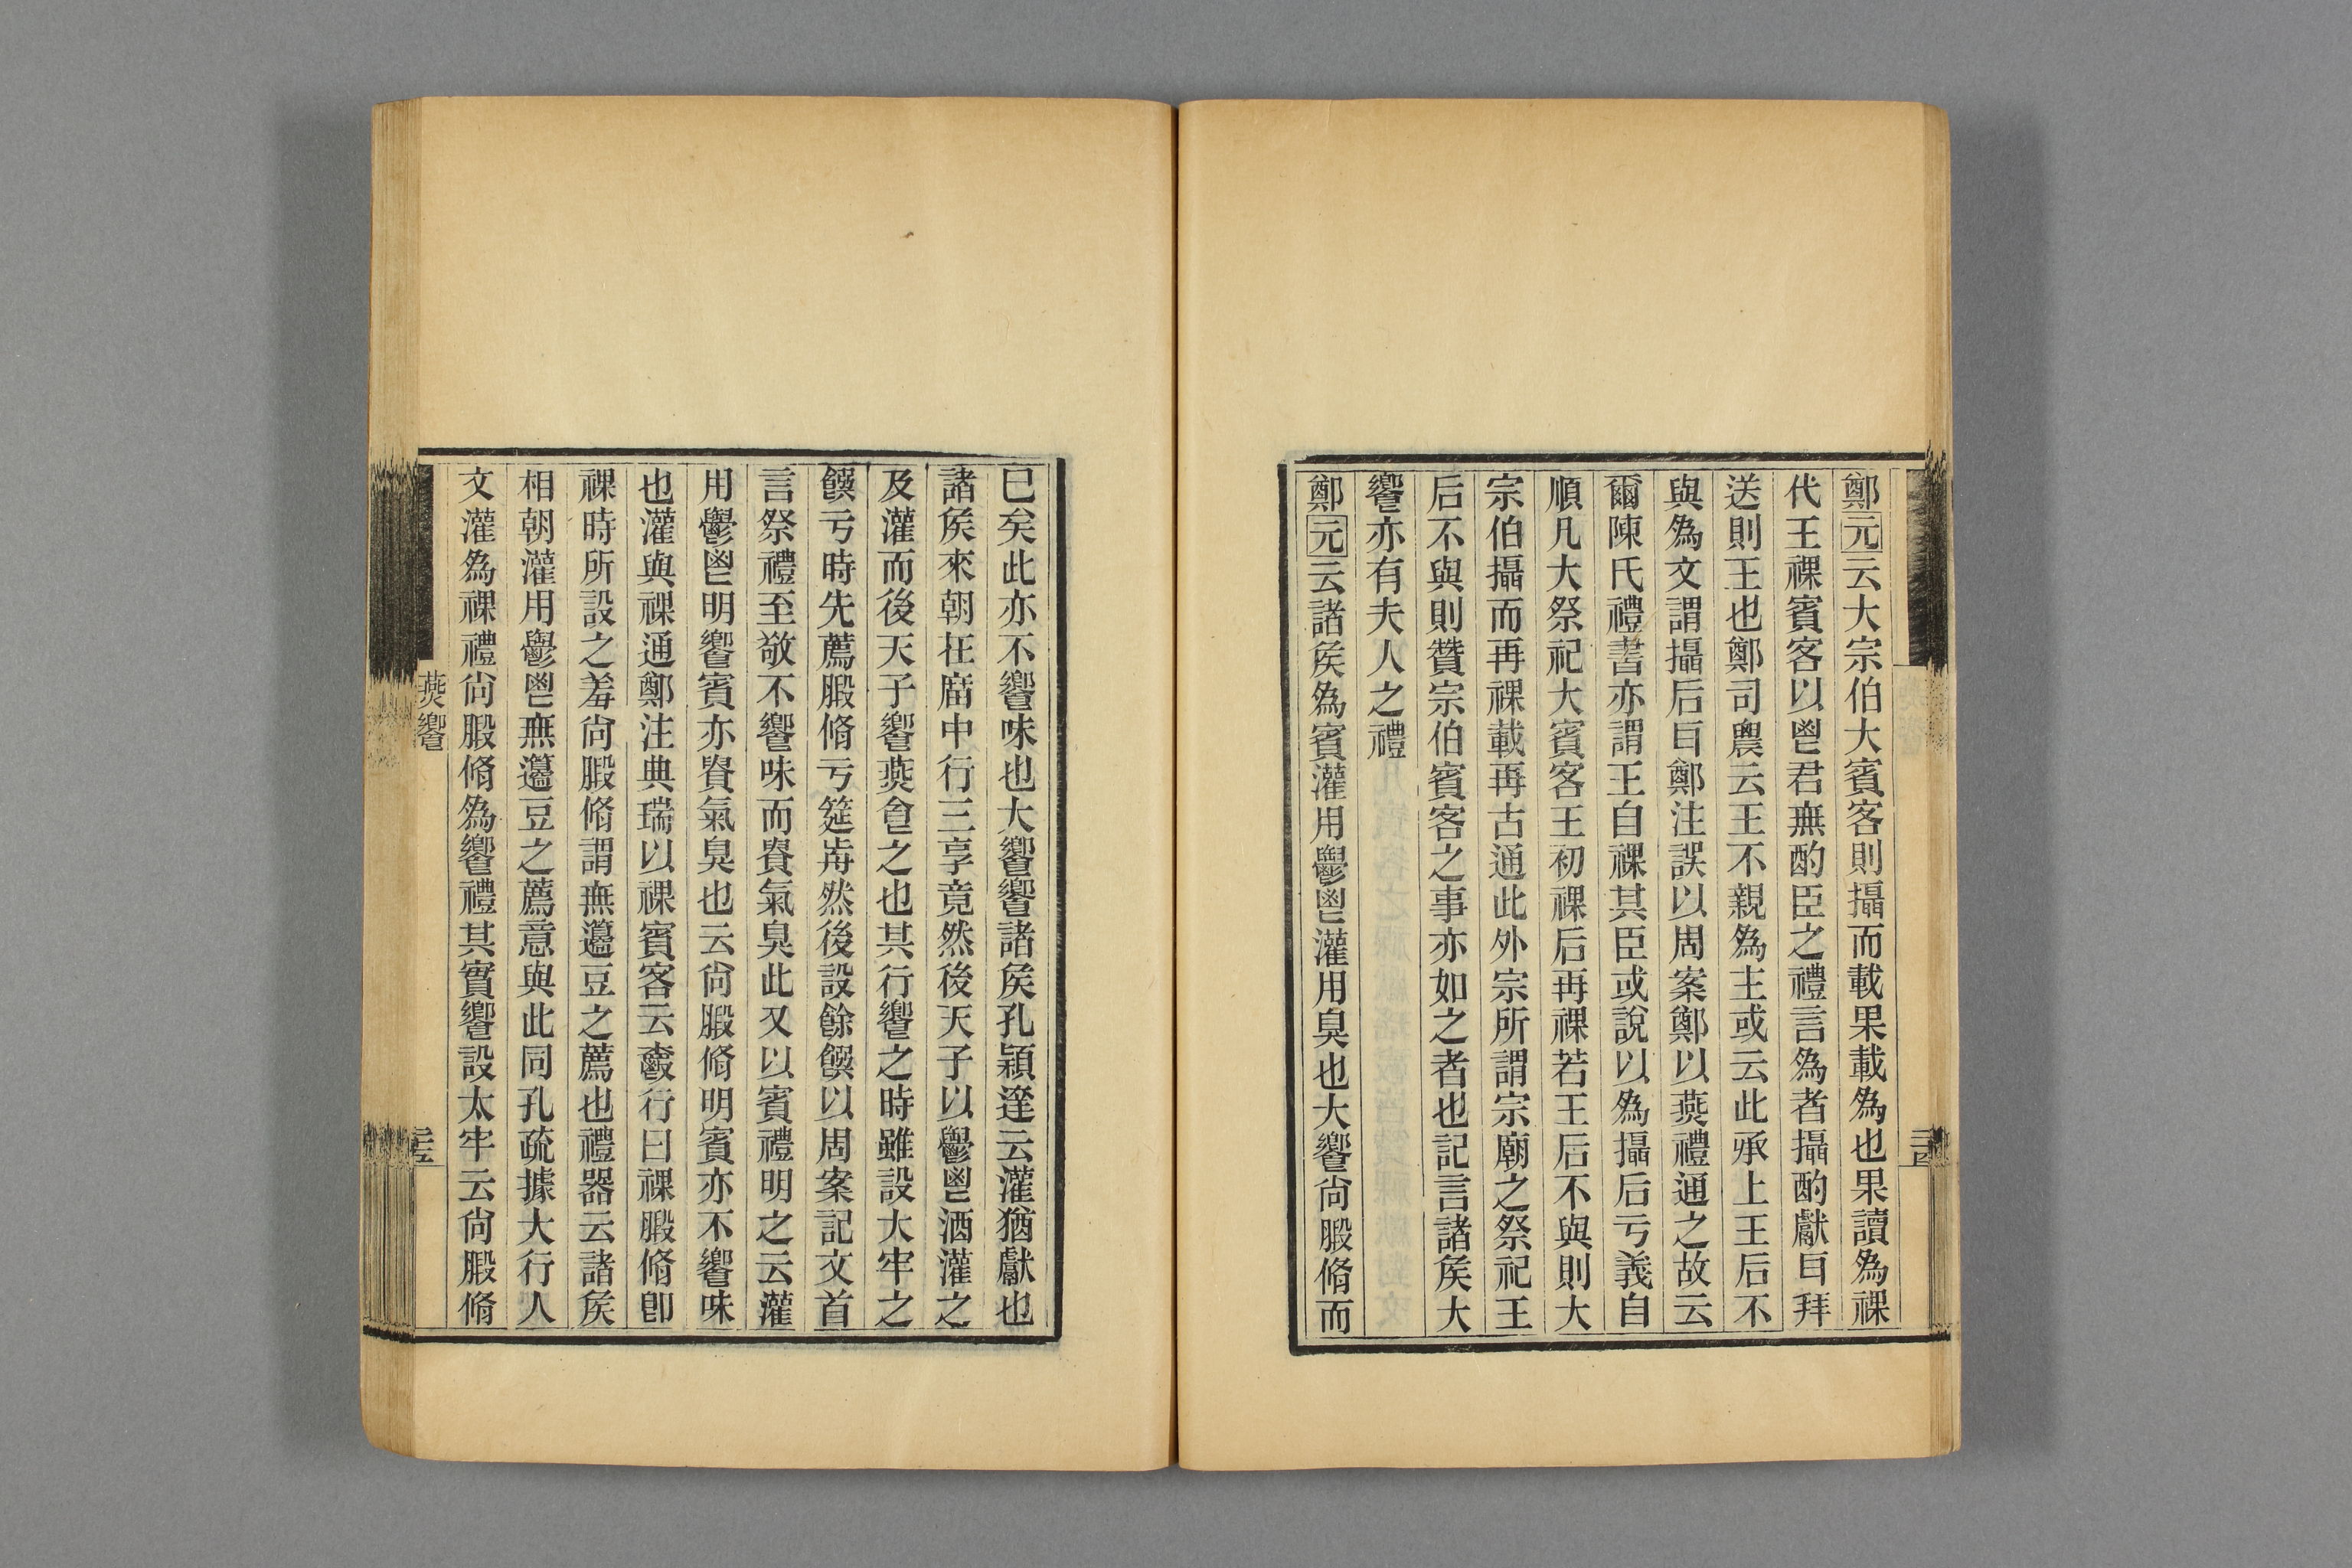 鄭元云大宗伯大賓客則攝而載果載爲也果讀爲祼
代王祼賓客以鬯君無酌臣之禮言爲者攝酌獻𦣹拜
送則王也鄭司農云王不親爲主或云此承上王后不
與爲文謂攝后𦣹鄭注誤以周案鄭以燕禮通之故云
爾陳氏禮書亦謂王自祼其臣或說以爲攝后亏義自
順凡大祭祀大賓客王初祼后再祼若王后不與則大
宗伯攝而再祼載再古通此外宗所謂宗廟之祭祀王
后不與則贊宗伯賓客之事亦如之者也記言諸矦大
饗亦有夫人之禮
鄭元云諸矦爲賓灌用鬱鬯灌用臭也大饗尙腶脩而
已矣此亦不饗味也大饗饗諸矦孔穎達云灌猶獻也
諸矦來朝在廟中行三享竟然後天子以鬱鬯酒灌之
及灌而後天子饗燕食之也其行饗之時雖設大牢之
饌亏時先薦腶脩亏筵歬然後設餘饌以周案記文首
言祭禮至敬不饗味而貴氣臭此又以賓禮明之云灌
用鬱鬯明饗賓亦貴氣臭也云尙腶脩明賓亦不饗味
也灌與祼通鄭注典瑞以祼賓客云爵行曰祼腶脩卽
祼時所設之羞尙腶脩謂無籩豆之薦也禮器云諸矦
相朝灌用鬱鬯無籩豆之薦意與此同孔疏據大行人
文灌爲祼禮尙腶脩爲饗禮其實饗設太牢云尙腶脩
燕饗
二五